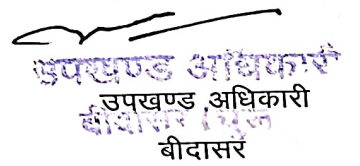 उपखण्ड अधिकारी
उपखण्ड अधिकारी
बीदासर (चूरू)
बीदासर